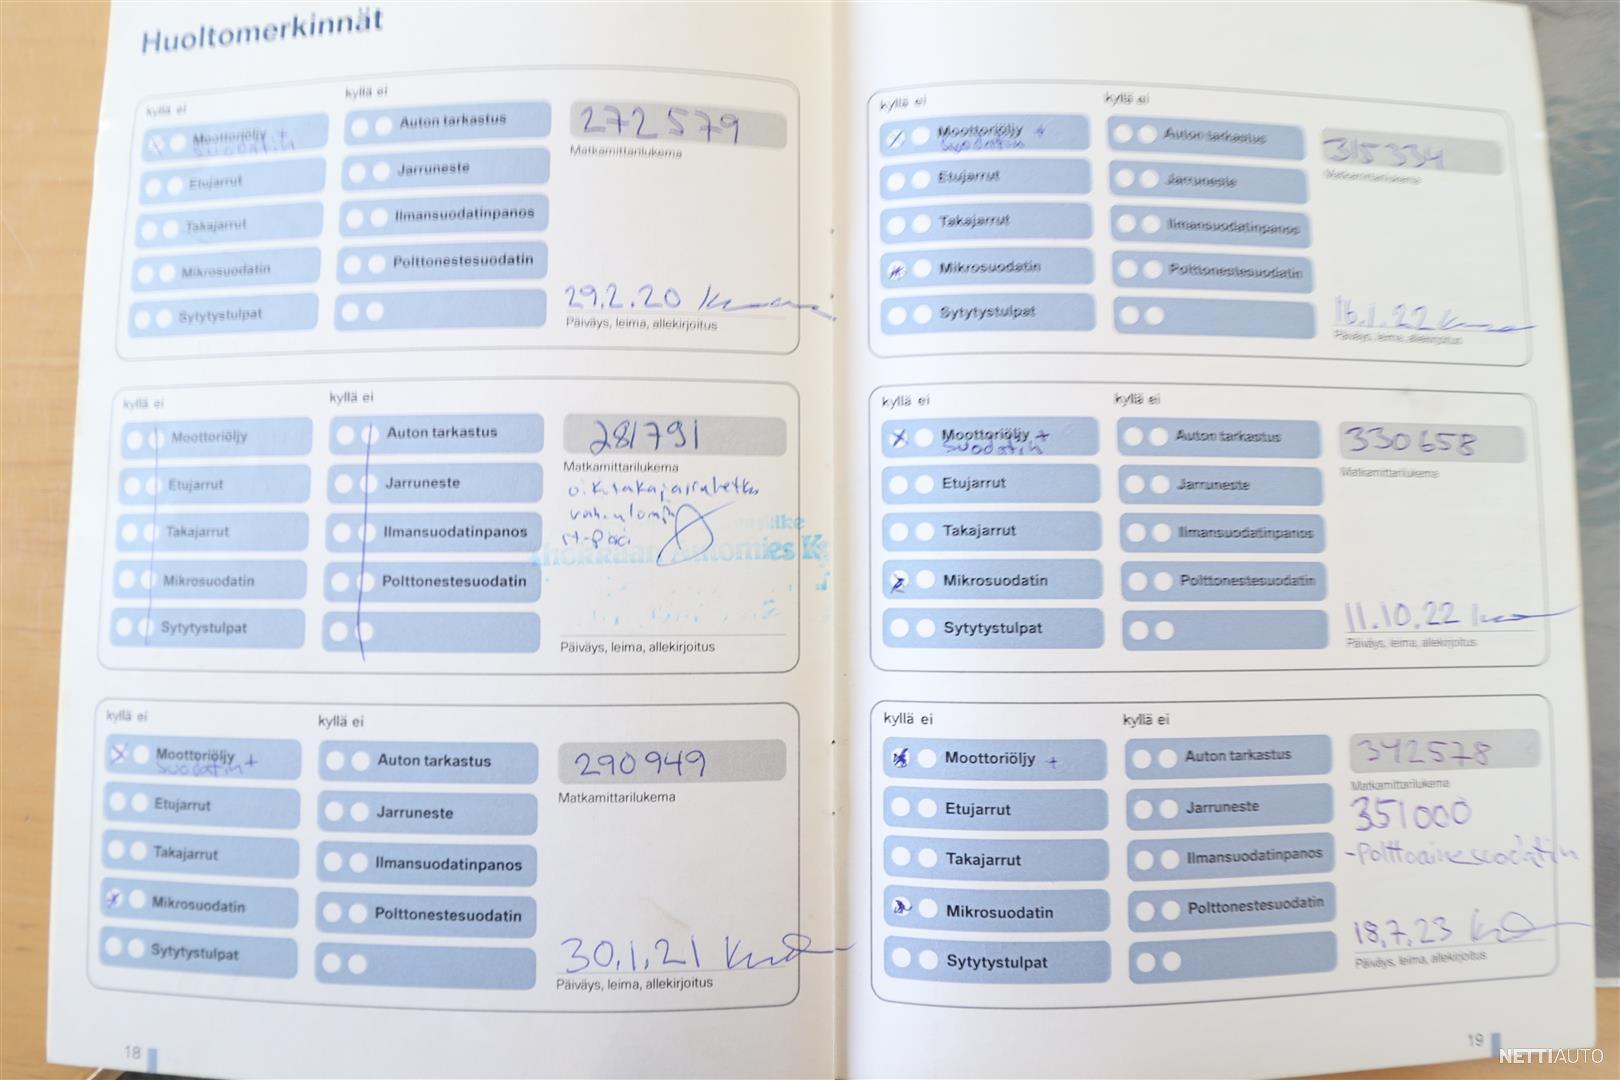 Huoltomerkinnät
kyllä ei
kyllä ei
Moottoriöljy +
suodatin
Etujarrut
Takajarrut
Mikrosuodatin
Sytytystulpat
Auton tarkastus
Jarruneste
Ilmansuodatinpanos
Polttonestesuodatin
272579
Matkamittarilukema
29.2.20
Päiväys, leima, allekirjoitus
kyllä ei
kyllä ei
Moottoriöljy
Etujarrut
Takajarrut
Mikrosuodatin
Sytytystulpat
Auton tarkastus
Jarruneste
Ilmansuodatinpanos
Polttonestesuodatin
281791
Matkamittarilukema
Päiväys, leima, allekirjoitus
kyllä ei
kyllä ei
Moottoriöljy
suodatin +
Etujarrut
Takajarrut
Mikrosuodatin
Sytytystulpat
Auton tarkastus
Jarruneste
Ilmansuodatinpanos
Polttonestesuodatin
290949
Matkamittarilukema
30.1.21
Päiväys, leima, allekirjoitus
18
kyllä ei
kyllä ei
Moottoriöljy +
suodatin
Etujarrut
Takajarrut
Mikrosuodatin
Sytytystulpat
Auton tarkastus
Jarruneste
Ilmansuodatinpanos
Polttonestesuodatin
315334
Matkamittarilukema
16.1.22
Päiväys, leima, allekirjoitus
kyllä ei
kyllä ei
Moottoriöljy +
suodatin
Etujarrut
Takajarrut
Mikrosuodatin
Sytytystulpat
Auton tarkastus
Jarruneste
Ilmansuodatinpanos
Polttonestesuodatin
330658
Matkamittarilukema
11.10.22
Päiväys, leima, allekirjoitus
kyllä ei
kyllä ei
Moottoriöljy +
Etujarrut
Takajarrut
Mikrosuodatin
Sytytystulpat
Auton tarkastus
Jarruneste
Ilmansuodatinpanos
Polttonestesuodatin
342578
Matkamittarilukema
351000
-Polttoainesuodatin
18.7.23
Päiväys, leima, allekirjoitus
19
NETTIAUTO